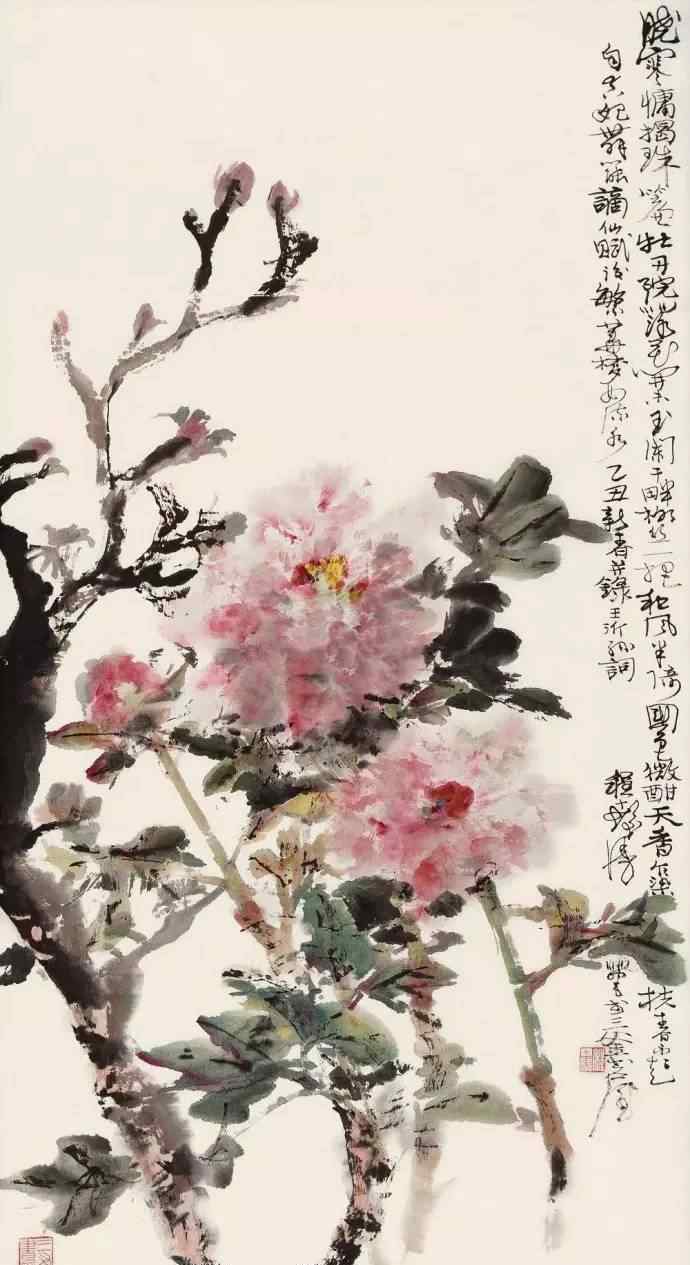 曉寒慵揭珠簾牡丹院落花開未玉闌干畔柳絲一把和風半倚國色微酣天香乍染扶春不起
自真妃舞罷謫仙賦後繁華夢如流水乙丑新春并錄王沂孫詞